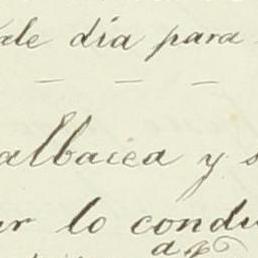 ale día para
albacea y s
ar lo condu